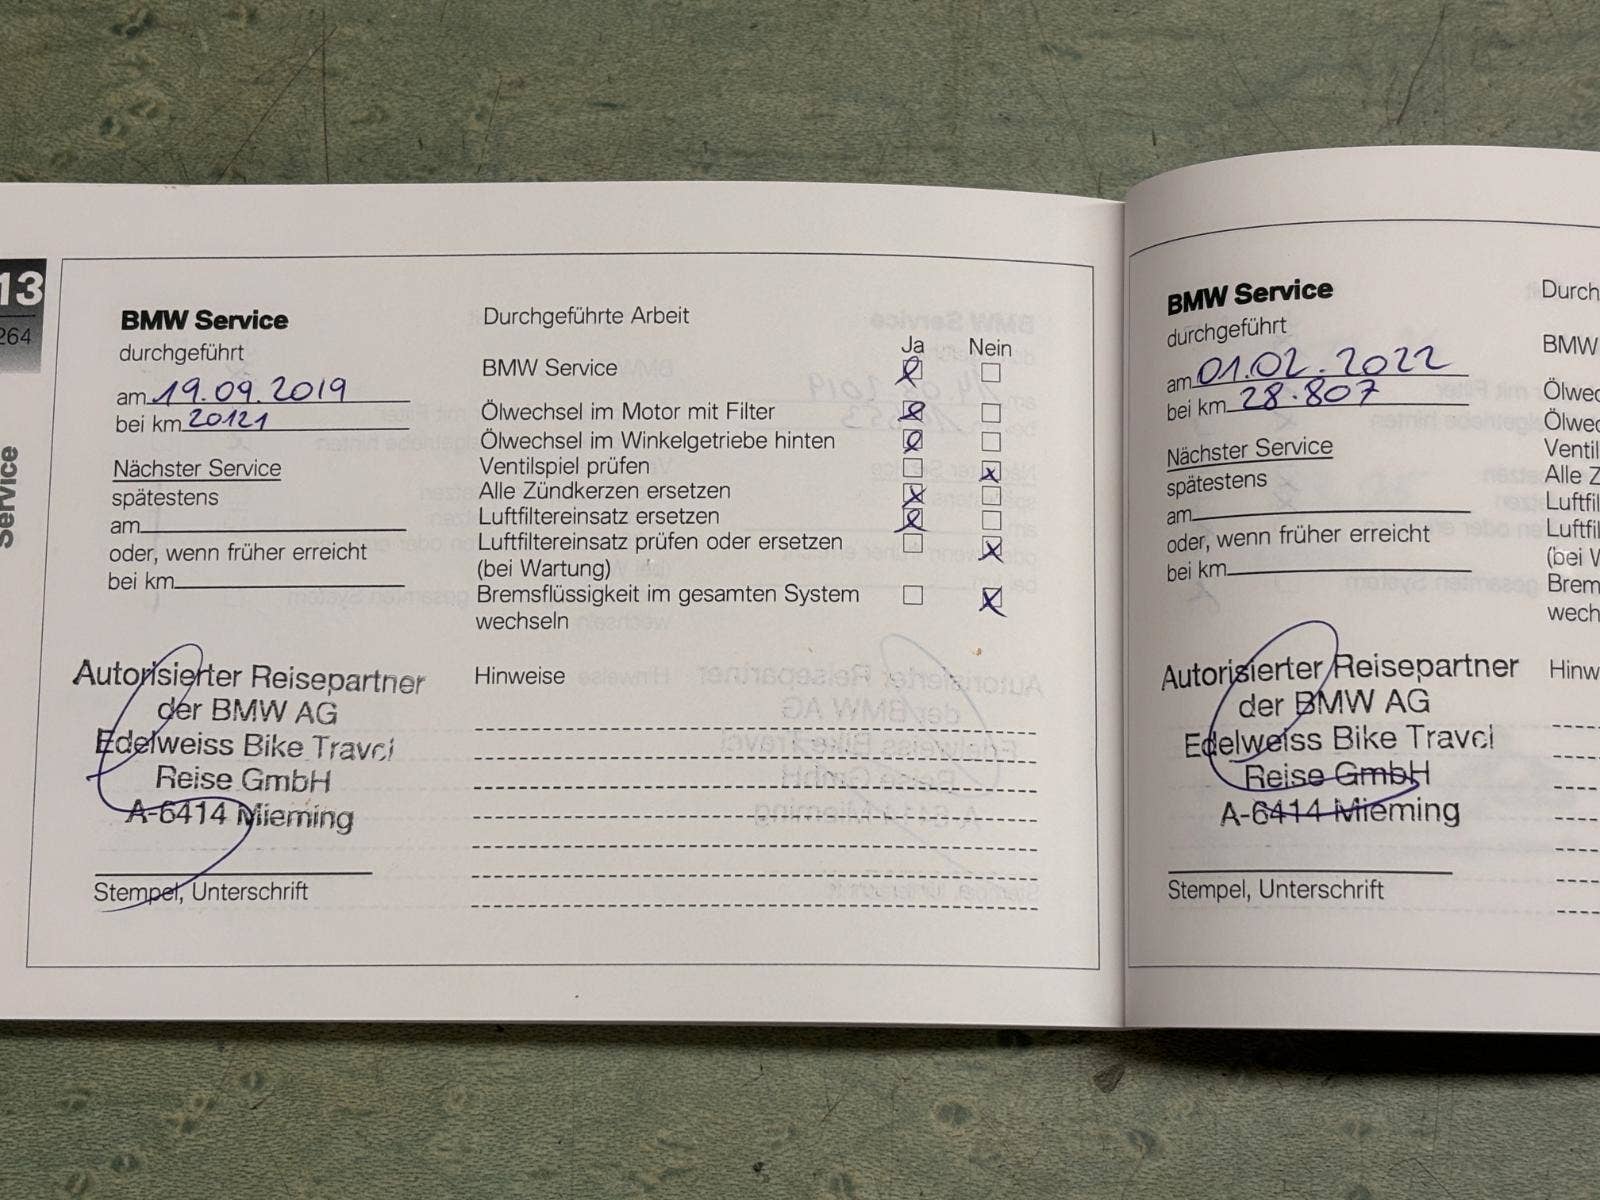 13
264
Service
BMW Service
durchgeführt
am 19.09.2019
bei km 20121
Nächster Service
spätestens
am
oder, wenn früher erreicht
bei km
Autorisierter Reisepartner
der BMW AG
Edelweiss Bike Travel
Reise GmbH
A-6414 Mieming
Stempel, Unterschrift
Durchgeführte Arbeit
Ja Nein
BMW Service
Ölwechsel im Motor mit Filter
Ölwechsel im Winkelgetriebe hinten
Ventilspiel prüfen
Alle Zündkerzen ersetzen
Luftfiltereinsatz ersetzen
Luftfiltereinsatz prüfen oder ersetzen
(bei Wartung)
Bremsflüssigkeit im gesamten System
wechseln
Hinweise
BMW Service
durchgeführt
am 01.02.2022
bei km 28.807
Nächster Service
spätestens
am
oder, wenn früher erreicht
bei km
Autorisierter Reisepartner
der BMW AG
Edelweiss Bike Travel
Reise GmbH
A-6414 Mieming
Stempel, Unterschrift
Durch
BMW
Ölwec
Ölwec
Ventil
Alle Z
Luftfil
Luftfil
(bei W
Brem
wech
Hinw